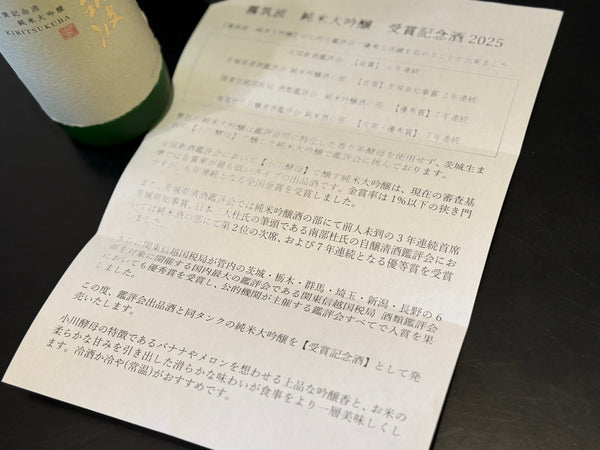 筑波
受賞記念酒
純米大吟醸
KIRITSUKUBA
霧筑波 純米大吟醸 受賞記念酒 2025
【霧筑波 純米大吟醸】が
鑑評会で優秀な成績を収めることが出来ました。
全国新酒鑑評会 【金賞】 6年連続
茨城県清酒鑑評会 純米吟醸酒の部 【首席】茨城県知事賞 3年連続
関東信越国税局 酒類鑑評会 純米吟醸酒の部 【優秀賞】7年連続
南部杜氏自醸清酒鑑評会 純米吟醸酒の部 【次席・優等賞】7年連続
弊社の純米大吟醸は鑑評会用に特化した香り系酵母を使用せず、茨城生ま
れの【小川酵母】で醸した純米大吟醸で鑑評会に挑んでおります。
全国新酒鑑評会において【小川酵母】で醸す純米大吟醸は、現在の審査基
準では金賞率が最も低いタイプの出品酒です。金賞率は1%以下の狭き門
ですが、6年連続となる全国金賞を受賞しました。
また、茨城県清酒鑑評会では純米吟醸酒の部にて前人未到の3年連続首席
茨城県知事賞、日本三大杜氏の筆頭である南部杜氏の自醸清酒鑑評会にお
いては純米酒の部にて第2位の次席、および7年連続となる優等賞を受賞
しました。
さらに関東信越国税局が管内の茨城・栃木・群馬・埼玉・新潟・長野の6
県を対象に開催する国内最大の鑑評会である関東信越国税局 酒類鑑評会
においても優秀賞を受賞し、公的機関が主催する鑑評会すべてで入賞を果
しました。
この度、鑑評会出品酒と同タンクの純米大吟醸を【受賞記念酒】として発
売いたします。
小川酵母の特徴であるバナナやメロンを想わせる上品な吟醸香と、お米の
柔らかな甘みを引き出した滑らかな味わいが食事をより一層美味しくし
ます。冷酒か冷や(常温)がおすすめです。